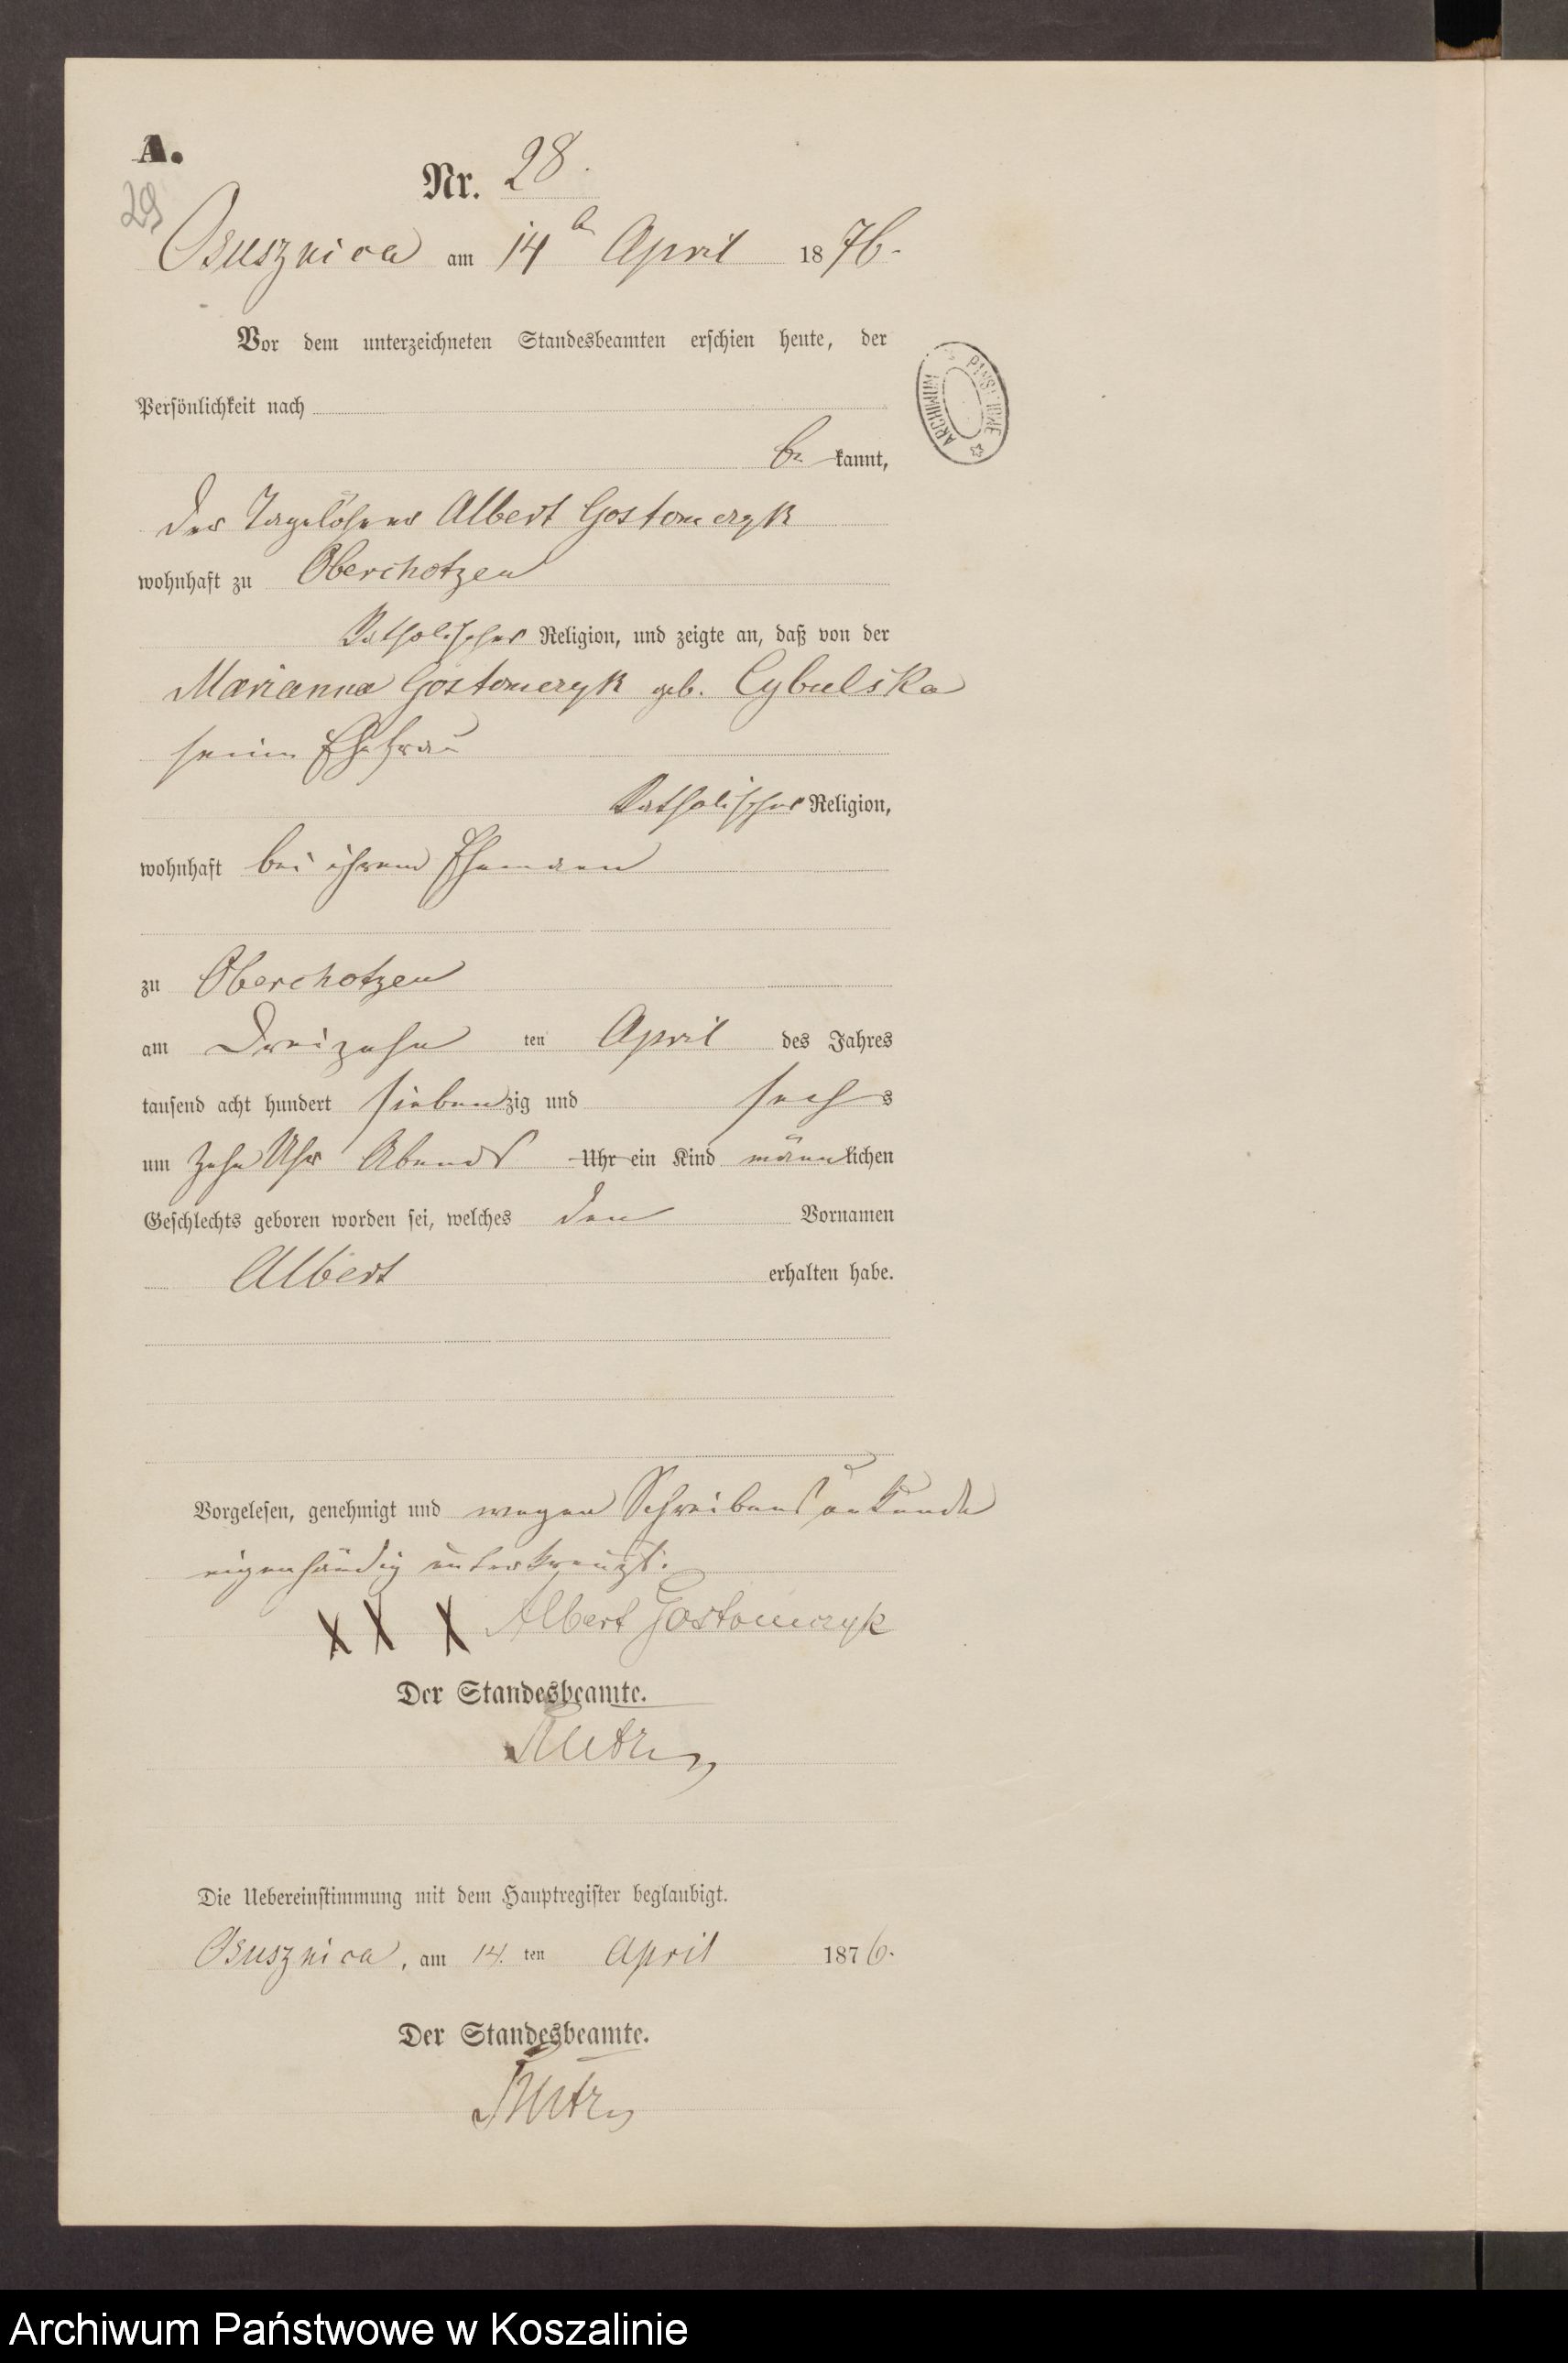 A.
29
Nr. 28.
Osusznica am 14 April 1876.
Vor dem unterzeichneten Standesbeamten erschien heute, der
Persönlichkeit nach
be kannt,
der Tagelöhner Albert Gostomczyk
wohnhaft zu Oberchotzen
Katholischer Religion, und zeigte an, daß von der
Marianna Gostomczyk geb. Cybulska
seiner Ehefrau
Katholischer Religion,
wohnhaft bei ihrem Ehemann
zu Oberchotzen
am Dreizehn ten April des Jahres
tausend acht hundert siebenzig und sechs
um zehn Uhr Abends Uhr ein Kind männlichen
Geschlechts geboren worden sei, welches den Vornamen
Albert erhalten habe.
Vorgelesen, genehmigt und wegen Schreibensunkunde
eigenhändig unterkreuzt.
X X X Albert Gostomczyk
Der Standesbeamte.
Die Uebereinstimmung mit dem Hauptregister beglaubigt.
Osusznica, am 14. ten April 1876.
Der Standesbeamte.
Archiwum Państwowe w Koszalinie